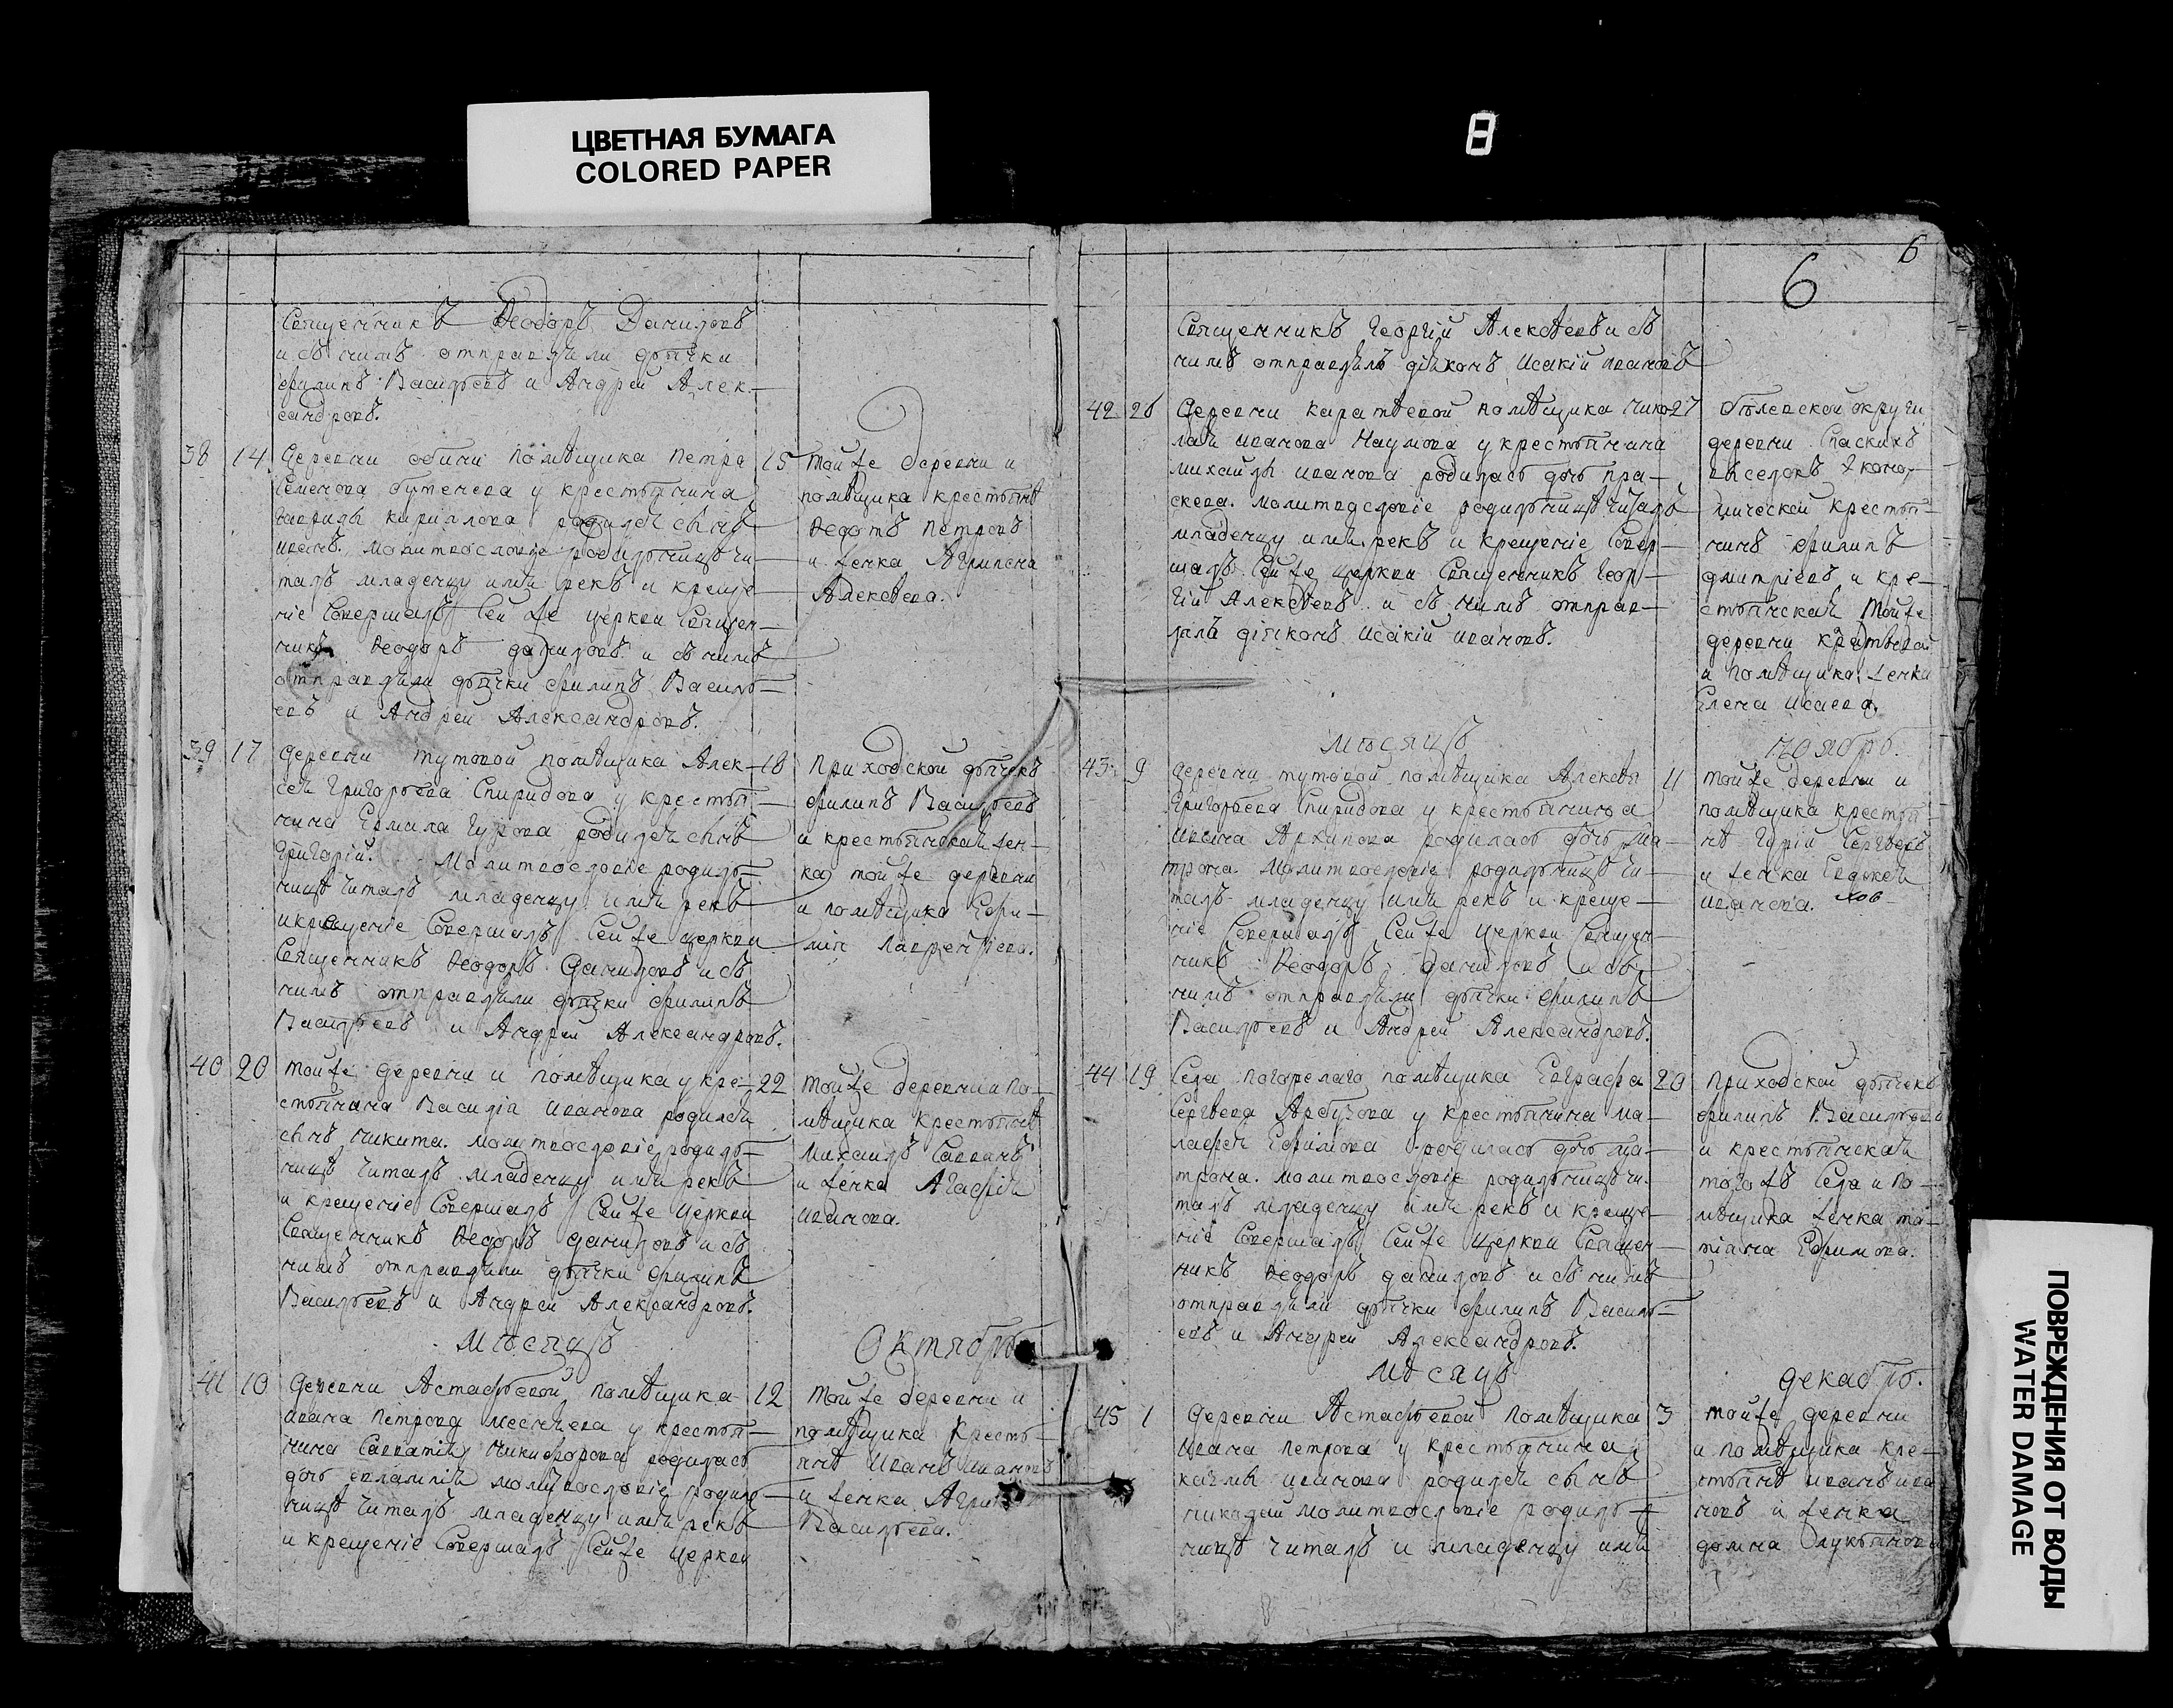 ЦВЕТНАЯ БУМАГА
COLORED PAPER
8
Священникъ Ѳеодоръ Даниловъ
и съ нимъ отправляли дьячки
Филипъ Васильевъ и Андрей Алек-
сандровъ.
38 14 Деревни помѣщика Петра 15
Семенова Бутенева у крестьянина
Гаврилы Кирилова родился сынъ
Иванъ. молитвословіе родильницѣ чи-
талъ младенцу имя рекъ и креще-
ніе совершалъ сей же церкви священ-
никъ Ѳеодоръ Даниловъ и съ нимъ
отправляли дьячки Филипъ Василь-
евъ и Андрей Александровъ.
той же деревни и
помѣщика крестьянѣ
Ѳедотъ Петровъ
и женка Агрипена
Алексѣева.
39 17 Деревни Тутовой помѣщика Алек- 18
сея Григорьева Спиридова у крестья-
нина Ермила Гурова родился сынъ
Григорій. Молитвословіе родиль-
ницѣ читалъ младенцу имя рекъ
и крещеніе совершалъ сей же церкви
Священникъ Ѳеодоръ Даниловъ и съ
нимъ отправляли дьячки Филипъ
Васильевъ и Андрей Александровъ.
приходской дьячекъ
Филипъ Васильевъ
и крестьянская жен-
ка той же деревни
и помѣщика Ефи-
мія Лаврентіева.
40 20 той же деревни и помѣщика у кре- 22
стьянина Василія Иванова родился
сынъ Никита. молитвословіе родиль-
ницѣ читалъ младенцу имя рекъ
и крещеніе совершалъ сей же церкви
Священникъ Ѳеодоръ Даниловъ и съ
нимъ отправляли дьячки Филипъ
Васильевъ и Андрей Александровъ.
той же деревни и по-
мѣщика крестьянѣ
Михаилъ Савинъ
и женка Агафія
Иванова.
Мѣсяцъ Октябрь
41 10 Деревни Астафьевой помѣщика 12
Ивана Петрова у крестья-
нина Никифорова родилась
дочь Евлампія молитвословіе родиль-
ницѣ читалъ младенцу имя рекъ
и крещеніе совершалъ сей же церкви
той же деревни и
помѣщика кресть-
янѣ Иванъ Ивановъ
и женка
Васильева.
6
6
Священникъ Георгій Алексѣевъ и съ
нимъ отправлялъ діяконъ Исакій Ивановъ
42 26 Деревни Каратѣевой помѣщика Нико- 27
лая Иванова Наумова у крестьянина
Михайлы Иванова родилась дочь Пра-
скева. молитвословіе родильницѣ читалъ
младенцу имя рекъ и крещеніе совер-
шалъ сей же церкви священникъ Геор-
гій Алексѣевъ и съ нимъ отправ-
лялъ діяконъ Исакій Ивановъ.
Бѣлевской округи
деревни Спаскихъ
выселокъ эконо-
мической крестья-
нинъ Филипъ
Дмитріевъ и кре-
стьянская той же
деревни
и помѣщика женка
Елена Исаева.
мѣсяцъ ноябрь.
43 9 Деревни Тутовой помѣщика Алексѣя 11
Григорьева Спиридова у крестьянина
Ивана Архипова родилась дочь Ма-
трона. молитвословіе родильницѣ чи-
талъ младенцу имя рекъ и креще-
ніе совершалъ сей же церкви священ-
никъ Ѳеодоръ Даниловъ и съ
нимъ отправляли дьячки Филипъ
Васильевъ и Андрей Александровъ.
той же деревни и
помѣщика крестья-
нѣ Гурій Сергѣевъ
и женка Евдокея
Иванова.
44 19 Села Погорелаго помѣщика Евграфа 20
Сергѣева Арбузова у крестьянина Ма-
лафея Ефимова родилась дочь Ма-
трона. молитвословіе родильницѣ чи-
талъ младенцу имя рекъ и креще-
ніе совершалъ сей же церкви священ-
никъ Ѳеодоръ Даниловъ и съ нимъ
отправляли дьячки Филипъ Василь-
евъ и Андрей Александровъ.
приходской дьячекъ
Филипъ Васильевъ
и крестьянская
тогожъ села и по-
мѣщика женка Та-
тіана Ефимова.
Мѣсяцъ декабрь.
45 1 Деревни Астафьевой помѣщика 3
Ивана Петрова у крестьянина
Иванова родился сынъ
молитвословіе родиль-
ницѣ читалъ и младенцу имя
той же деревни
и помѣщика кре-
стьянѣ Иванъ Ива
новъ и женка
Домна Лукьянова
ПОВРЕЖДЕНИЯ ОТ ВОДЫ
WATER DAMAGE